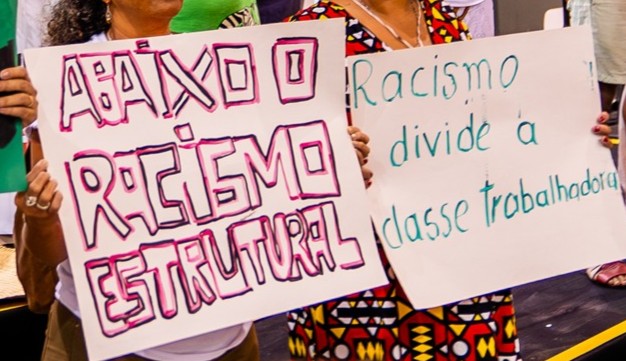 ABAIXO O
RACISMO
ESTRUTURAL
Racismo
divide a
classe trabalhadora